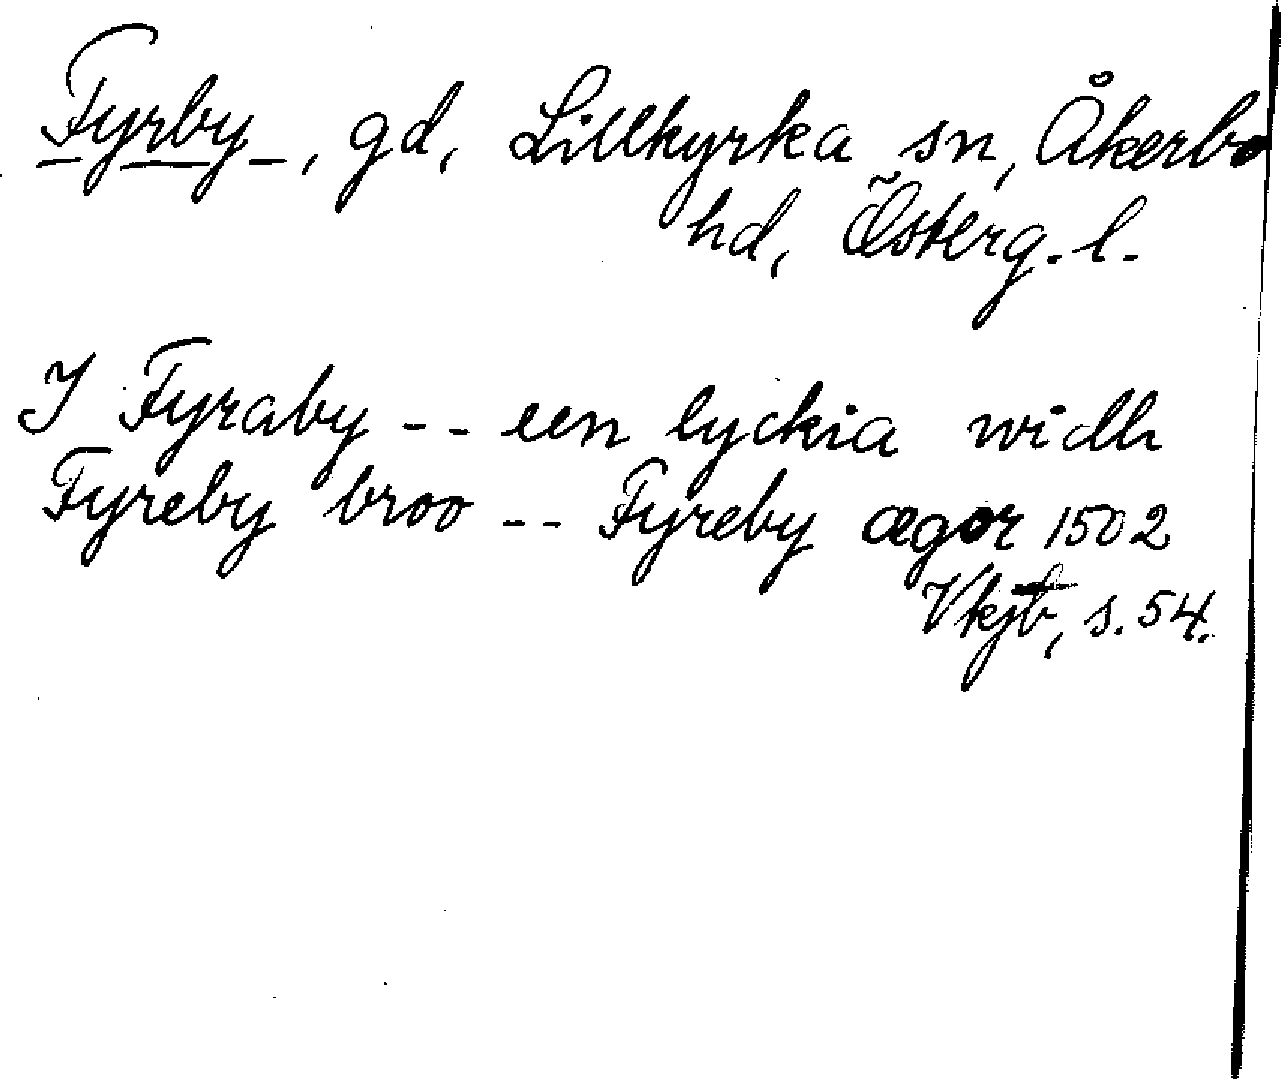 Fyrby, gd, Lillkyrka sn, Åkerbo
hd, Österg. l.
I Fyraby -- een lyckia widh
Fyreby broo -- Fyreby ægor 1502
Vkjb, s. 54.